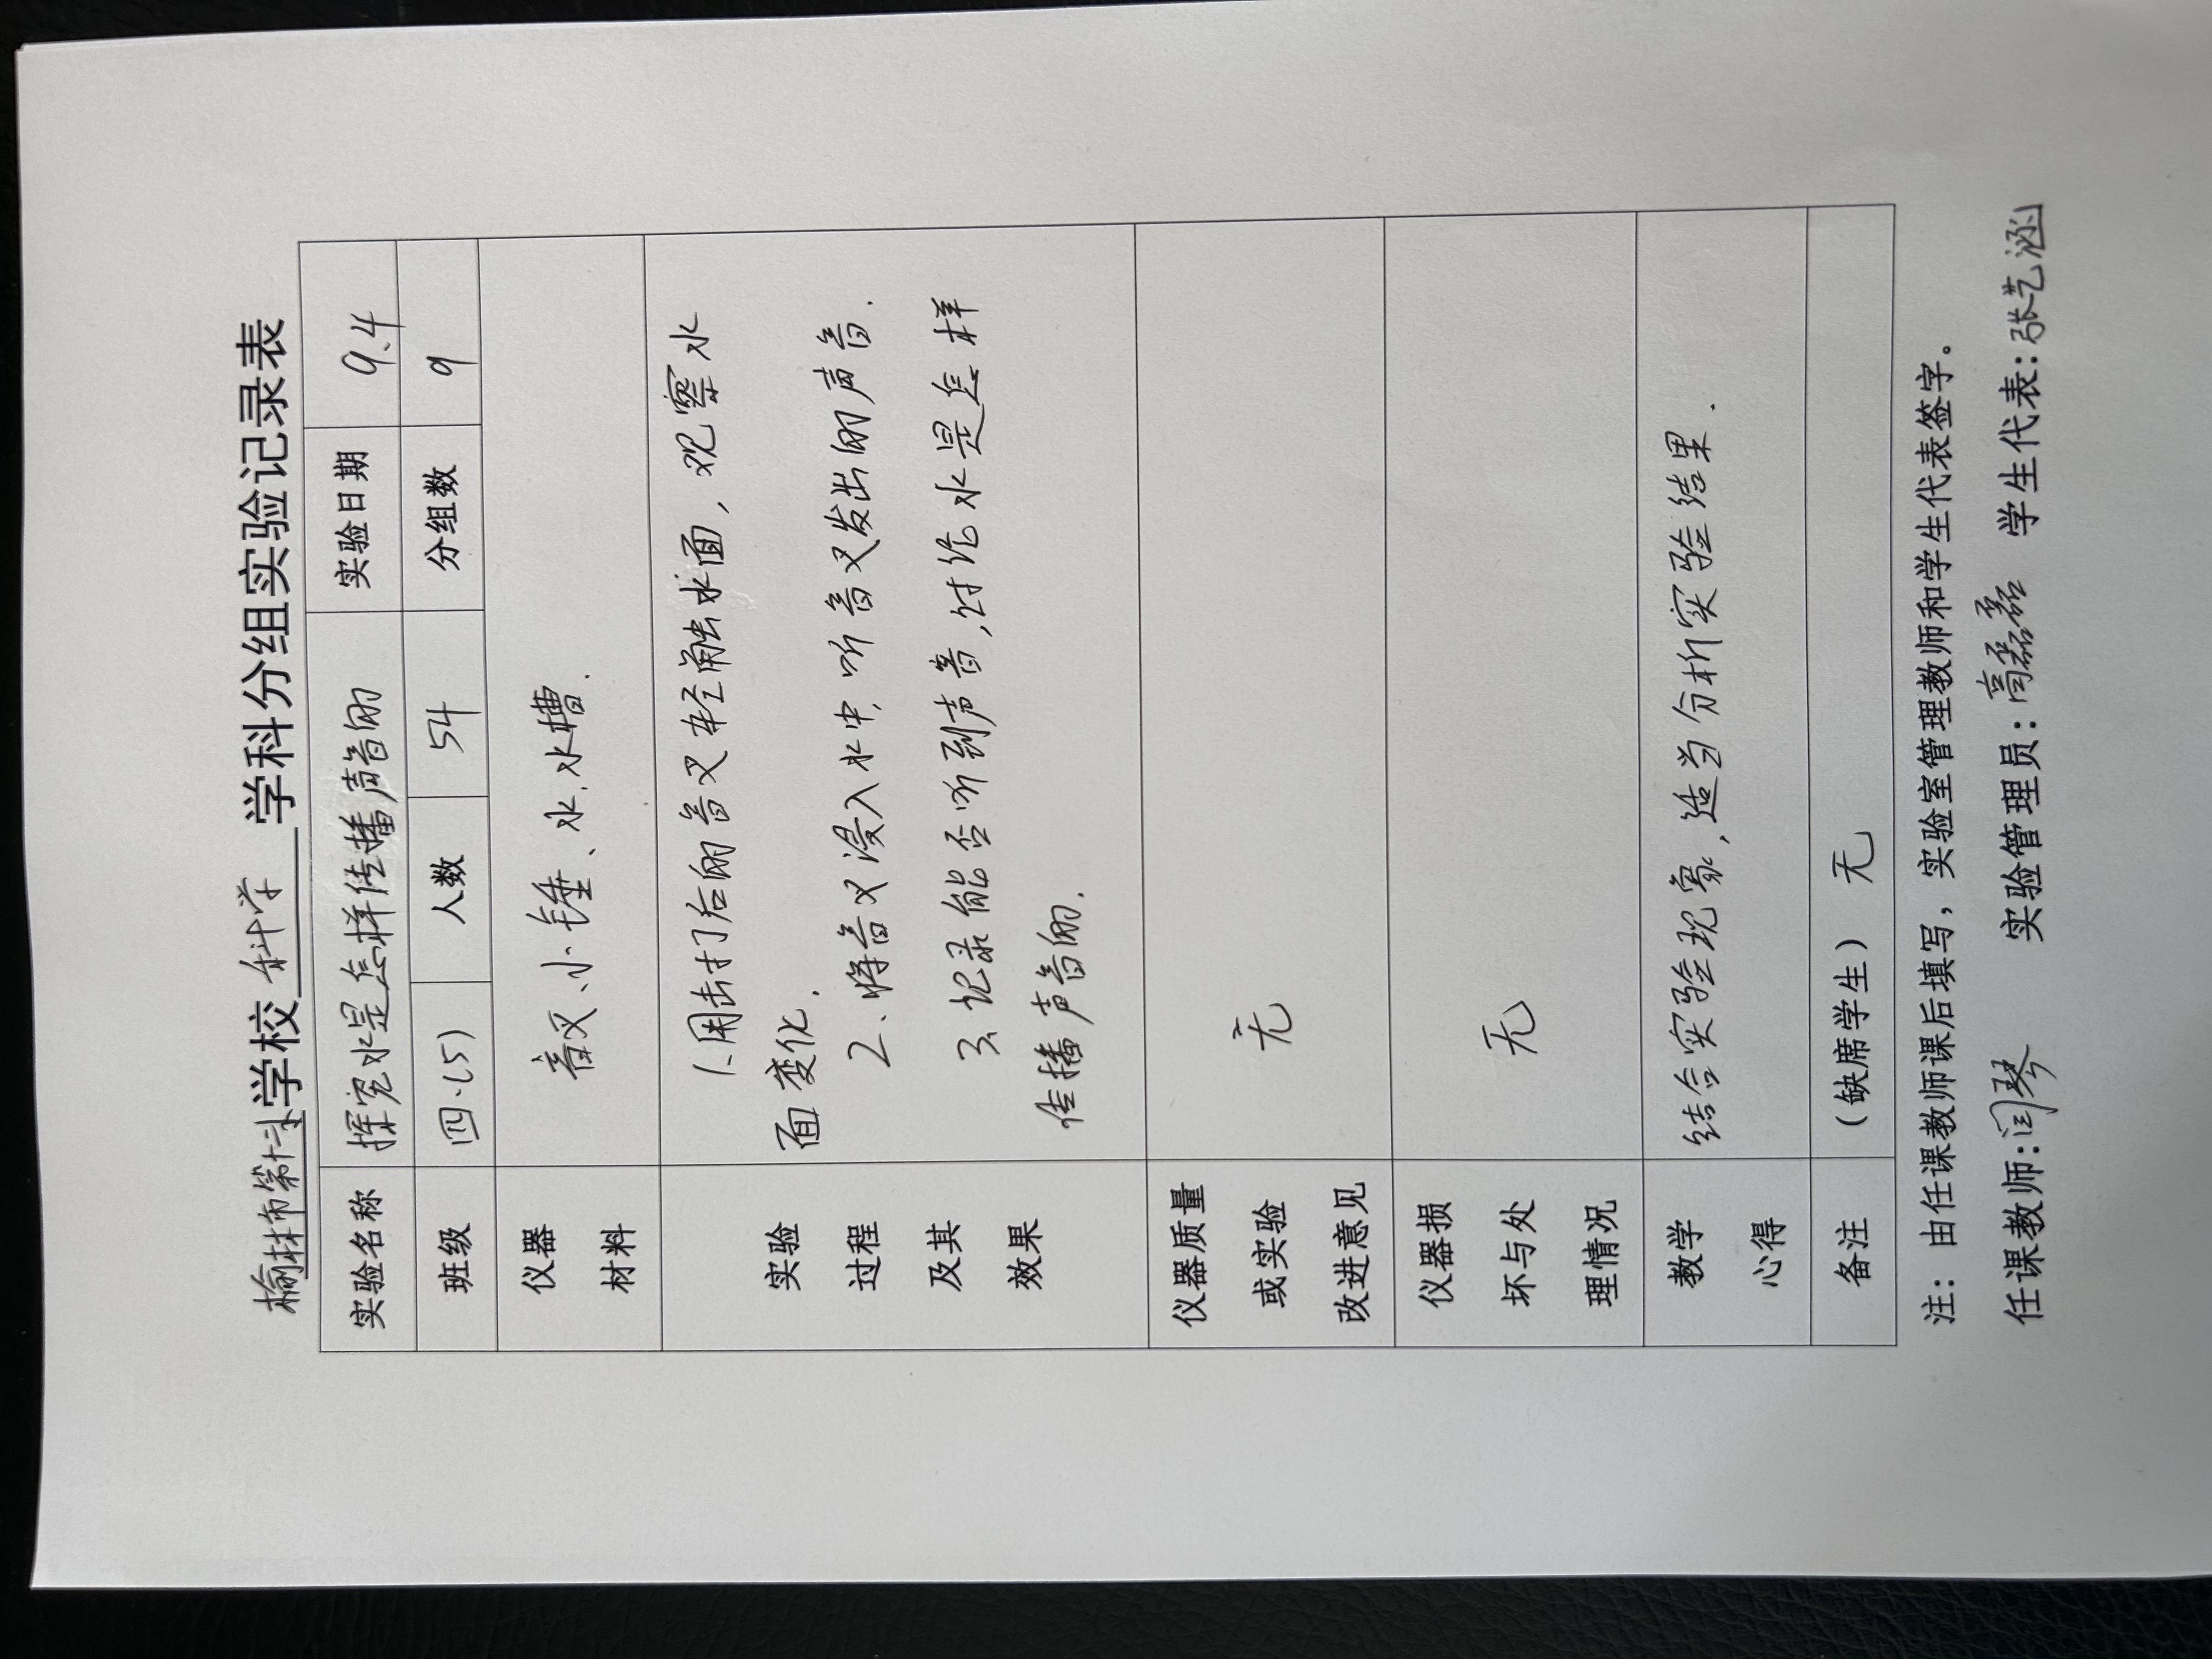 榆林市第十小学校 科学 学科分组实验记录表
实验名称 探究水是怎样传播声音的 实验日期 9.4
班级 四.(5) 人数 54 分组数 9
仪器
材料
音叉、小锤、水、水槽.
实验
过程
及其
效果
1.用击打后的音叉轻触水面,观察水
面变化.
2.将音叉浸入水中,听音叉发出的声音.
3.记录能否听到声音,讨论水是怎样
传播声音的.
仪器质量
或实验
改进意见
无
仪器损
坏与处
理情况
无
教学
心得
结合实验现象,适当分析实验结果.
备注 (缺席学生) 无
注:由任课教师课后填写,实验室管理教师和学生代表签字。
任课教师:闫琴 实验管理员:高磊磊 学生代表:张艺涵